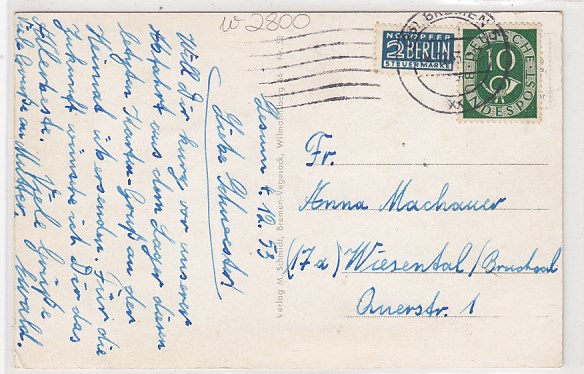 w 2800
Lesum 1.12.53
Liebe Schwester!
Will Dir kurz vor unserer
Abfahrt aus dem Lager diesen
letzten Karten-Gruß an der
Heimat übersenden. Für die
Zukunft wünsche ich Dir das
Allerbeste. Viele Grüße
Ewald.
Viele Grüße an Mutter
Verlag M. Schmidt, Bremen-Vegesack, Wilmannsberg
NOTOPFER
2 BERLIN
STEUERMARKE
BREMEN
DEUTSCHE
10
BUNDESPOST
Fr.
Anna Machauer
(17a) Wiesental/Bruchsal
Querstr. 1